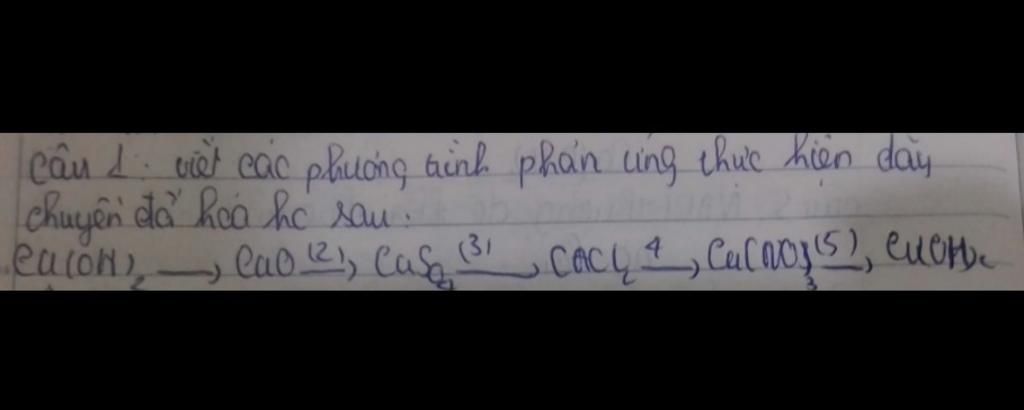 Câu 1: viết các phương trình phản ứng thực hiện dãy
chuyên đổ hoá hc sau:
Cu(OH)2 → CuO (2)→ CuSO4 (3)→ CuCl2 4→ Cu(NO3)2 (5)→ Cu(OH)2